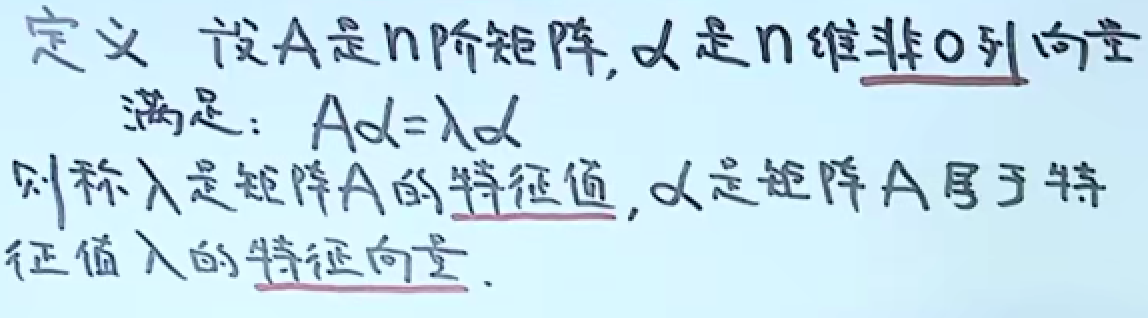 定义 设A是n阶矩阵,α是n维非0列向量
满足: Aα=λα
则称λ是矩阵A的特征值,α是矩阵A属于特
征值λ的特征向量.